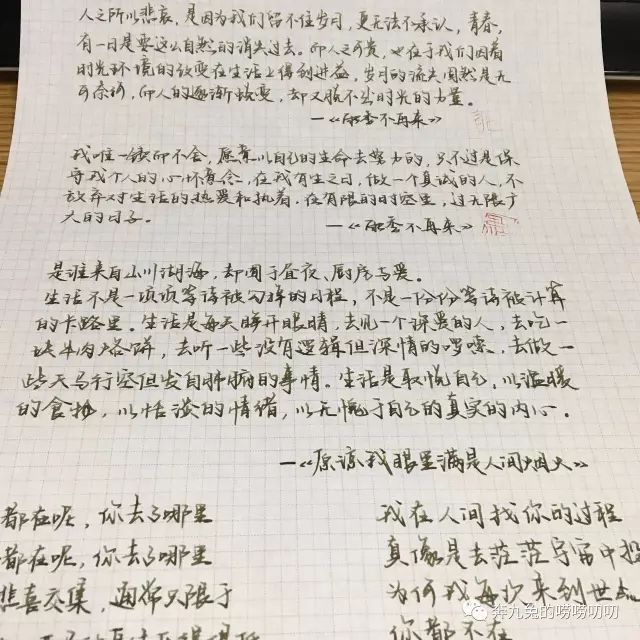 人之所以悲哀，是因为我们留不住岁月，更无法不承认，青春，
有一日是要这么自然的消失过去。而人之可贵，也在于我们因着
时光环境的改变在生活上得到进益，岁月的流失固然是无
可奈何，而人的逐渐蜕变，却又脱不出时光的力量。
—《雨季不再来》
我唯一锲而不舍，愿意以自己的生命去努力的，只不过是保
守我个人的心怀意念，在我有生之日，做一个真诚的人，不
放弃对生活的热爱和执着，在有限的时空里，过无限广
大的日子。
—《雨季不再来》
是谁来自山川湖海，却囿于昼夜、厨房与爱。
生活不是一项项等待被勾掉的日程，不是一份份等待被计算
的卡路里。生活是每天睁开眼睛，去见一个深爱的人，去吃一
块牛肉烙饼，去听一些没有逻辑但深情的啰嗦，去做一
些天马行空但发自肺腑的事情。生活是取悦自己，以温暖
的食物，以恬淡的情绪，以无愧于自己的真实的内心。
—《原谅我眼里满是人间烟火》
都在呢，你去了哪里
都在呢，你去了哪里
悲喜交集，通常只限于
我在人间找你的过程
真像是去茫茫宇宙中
为何我每次来到世
你都不在
李九兔的唠唠叨叨